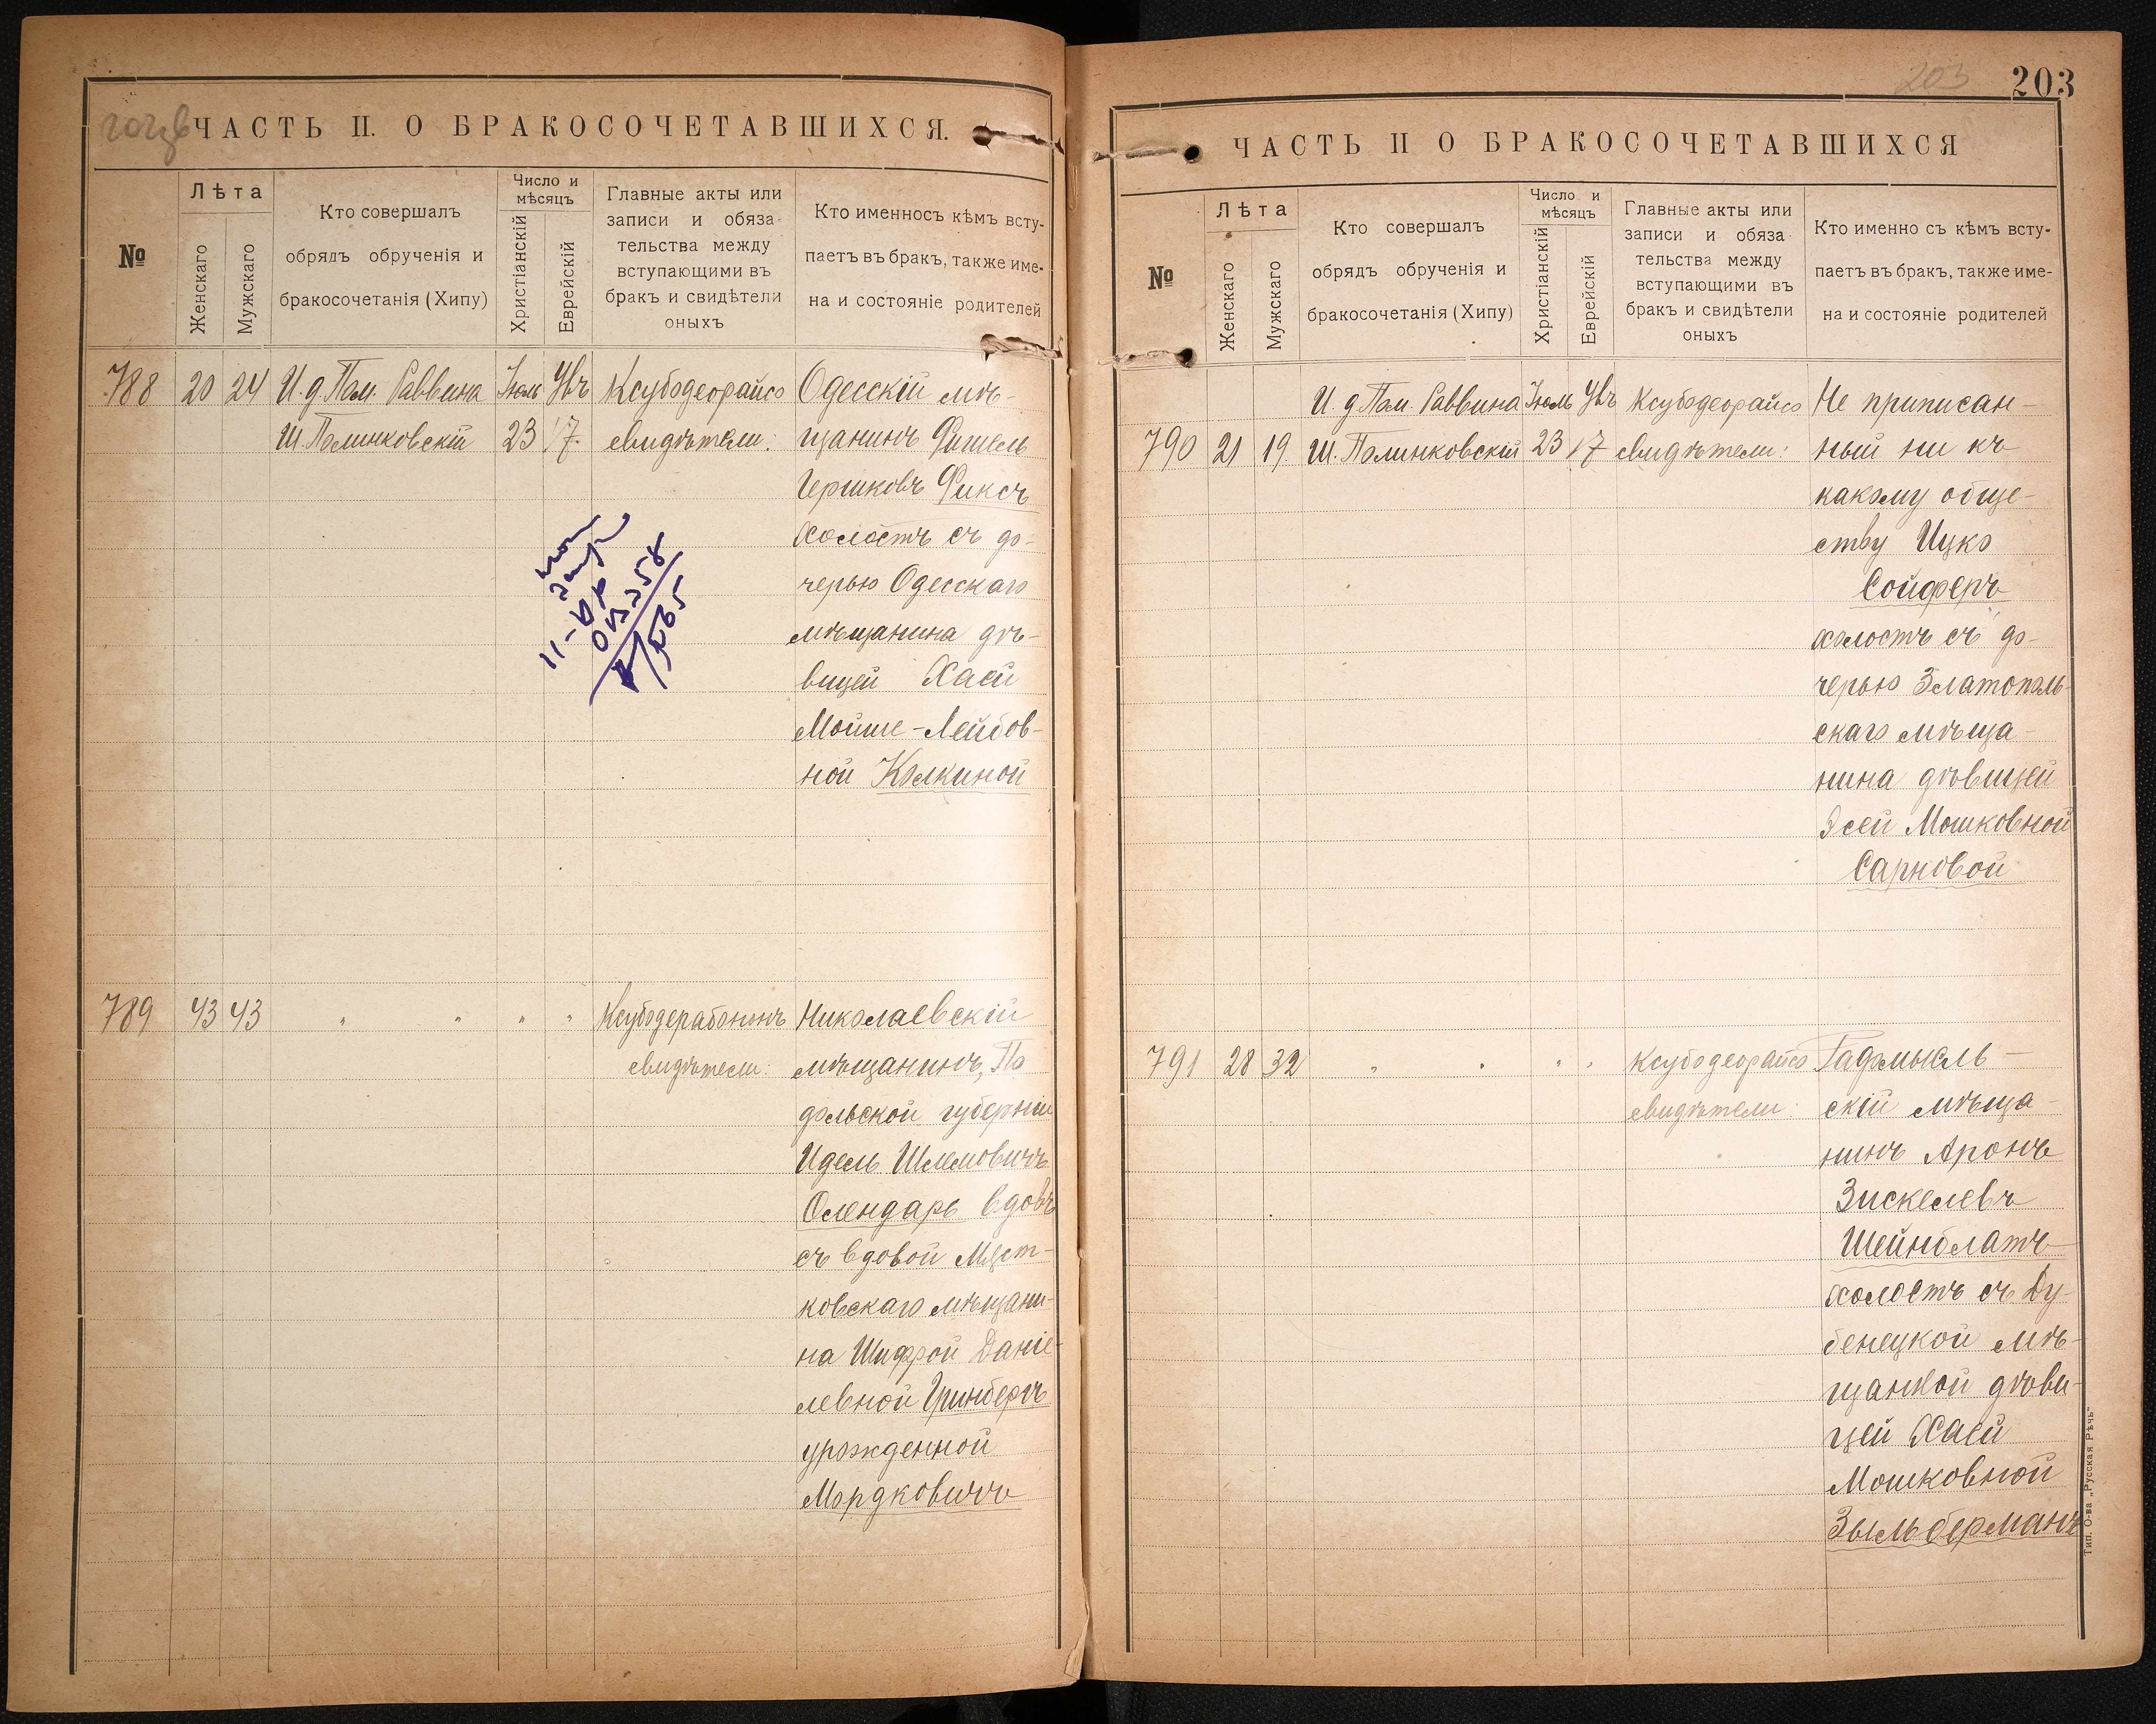 ЧАСТЬ II. О БРАКОСОЧЕТАВШИХСЯ.
№
Лѣта
Женскаго
Мужскаго
Кто совершалъ
обрядъ обрученія и
бракосочетанія (Хипу)
Число и
мѣсяцъ
Христіанскій
Еврейскій
Главные акты или
записи и обяза-
тельства между
вступающими въ
бракъ и свидѣтели
оныхъ
Кто именносъ кѣмъ всту-
паетъ въ бракъ, также име-
на и состояніе родителей
788 20 24 И. д. Пом. Раввина Іюль Увъ Ксубодеорайсо Одесскій мѣ-
Ш. Полинковскій 23 17 свидѣтели: щанинъ Фишель
Гершковъ Фиксъ
холостъ съ до-
черью Одесскаго
мѣщанина дѣ-
вицей Хаей
Мойше-Лейбов-
ной Колкиной
789 43 43 " " " " Ксубодерабононъ Николаевскій
свидѣтели: мѣщанинъ, По
дольской губерніи
Идель Шлемовичъ
Олендарь вдовъ
съ вдовой Мяст-
ковскаго мѣщани-
на Шифрой Даніе-
левной Гринбергъ
урожденной
Мордковичъ
203
203
ЧАСТЬ II О БРАКОСОЧЕТАВШИХСЯ
№
Лѣта
Женскаго
Мужскаго
Кто совершалъ
обрядъ обрученія и
бракосочетанія (Хипу)
Число и
мѣсяцъ
Христіанскій
Еврейскій
Главные акты или
записи и обяза-
тельства между
вступающими въ
бракъ и свидѣтели
оныхъ
Кто именно съ кѣмъ всту-
паетъ въ бракъ, также име-
на и состояніе родителей
И. д. Пом. Раввина Іюль Увъ Ксубодеорайсо Не приписан-
790 21 19 Ш. Полинковскій 23 17 свидѣтели: ный ни къ
какому обще-
ству Ицко
Сойферъ
холостъ съ до-
черью Златополь-
скаго мѣща-
нина дѣвицей
Эсей Мошковной
Сарновой
791 28 32 " " " " Ксубодеорайсо Радомысль-
свидѣтели: скій мѣща-
нинъ Аронъ
Зискелевъ
Шейнблатъ
холостъ съ Ду-
бенецкой мѣ-
щанкой дѣви-
цей Хаей
Мошковной
Зыльберманъ
Тип. О-ва „Русская Рѣчь"